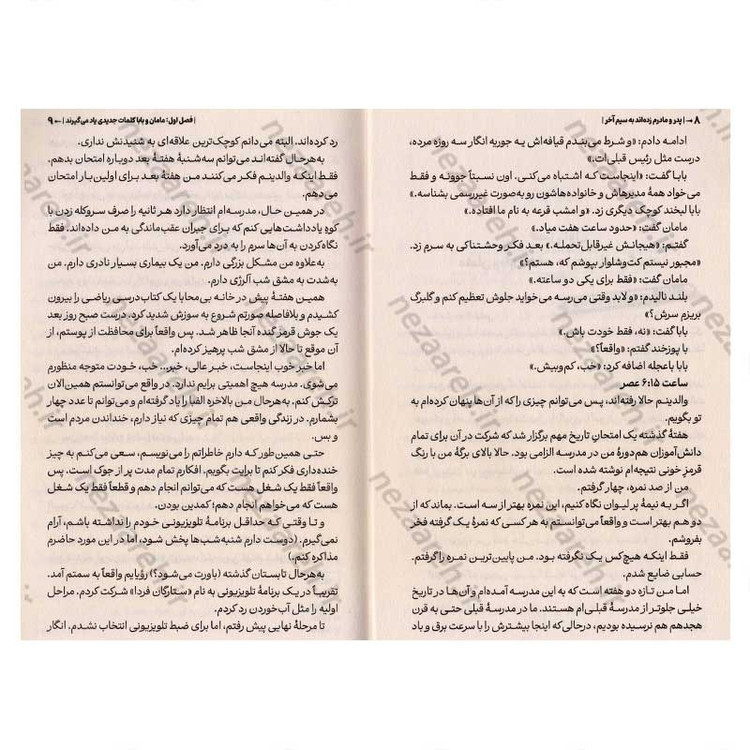 ۸ ← | پدر و مادرم زده‌اند به سیم آخر |
ادامه دادم: «و شرط می‌بندم قیافه‌اش یه جوریه انگار سه روزه مرده،
درست مثل رئیس قبلی‌ات.»
بابا گفت: «اینجاست که اشتباه می‌کنی. اون نسبتاً جوونه و فقط
می‌خواد همهٔ مدیرهاش و خانواده‌هاشون رو به‌صورت غیررسمی بشناسه.»
بابا لبخند کوچک دیگری زد. «و امشب قرعه به نام ما افتاده.»
مامان گفت: «حدود ساعت هفت میاد.»
گفتم: «هیجانش غیرقابل‌تحمله.» بعد فکر وحشتناکی به سرم زد.
«مجبور نیستم کت‌وشلوار بپوشم که، هستم؟»
مامان گفت: «فقط برای یکی دو ساعته.»
بلند نالیدم: «و لابد وقتی می‌رسه می‌خواید جلوش تعظیم کنم و گلبرگ
بریزم سرش؟»
بابا گفت: «نه، فقط خودت باش.»
با پوزخند گفتم: «واقعاً؟»
بابا باعجله اضافه کرد: «خب، کم‌وبیش.»
ساعت ۶:۱۵ عصر
والدینم حالا رفته‌اند، پس می‌توانم چیزی را که از آن‌ها پنهان کرده‌ام به
تو بگویم.
هفتهٔ گذشته یک امتحان تاریخ مهم برگزار شد که شرکت در آن برای تمام
دانش‌آموزان هم‌دورهٔ من در مدرسه الزامی بود. حالا بالای برگهٔ من با رنگ
قرمز خونی نتیجه‌ام نوشته شده است.
من از صد نمره، چهار گرفتم.
اگر به نیمهٔ پر لیوان نگاه کنیم، این نمره بهتر از سه است. بماند که از
دو هم بهتر است و واقعاً می‌توانستم به هر کسی که نمرهٔ یک گرفته فخر
بفروشم.
فقط اینکه هیچ‌کس یک نگرفته بود. من پایین‌ترین نمره را گرفتم.
حسابی ضایع شدم.
اما من تازه دو هفته است که به این مدرسه آمده‌ام و آن‌ها در تاریخ
خیلی جلوتر از مدرسهٔ قبلی‌ام هستند. ما در مدرسهٔ قبلی حتی به قرن
هجدهم هم نرسیده بودیم، درحالی‌که اینجا بیشترش را با سرعت برق و باد
| فصل اول: مامان و بابا کلمات جدیدی یاد می‌گیرند | → ۹
رد کرده‌اند. البته می‌دانم کوچک‌ترین علاقه‌ای به شنیدنش نداری.
به‌هرحال گفته‌اند می‌توانم سه‌شنبهٔ هفتهٔ بعد دوباره امتحان بدهم.
فقط اینکه والدینم فکر می‌کنند من هفتهٔ بعد برای اولین‌بار امتحان
می‌دهم.
در همین حال، مدرسه‌ام انتظار دارد هر ثانیه را صرف سروکله زدن با
کوه یادداشت‌هایی کنم که برای جبران عقب‌ماندگی به من داده‌اند. فقط
نگاه‌کردن به آن‌ها سرم را به درد می‌آورد.
به‌علاوه من مشکل بزرگی دارم. من یک بیماری بسیار نادری دارم. من
به‌شدت به مشق شب آلرژی دارم.
همین هفتهٔ پیش در خانه بی‌محابا یک کتاب‌درسی ریاضی را بیرون
کشیدم و بلافاصله صورتم شروع به سوزش شدید کرد. درست صبح روز بعد
یک جوش قرمز گنده آنجا ظاهر شد. پس واقعاً برای محافظت از پوستم، از
آن موقع تا حالا از مشق شب پرهیز کرده‌ام.
اما خبر خوب اینجاست، خبر عالی، خبر... خب، خودت متوجه منظورم
می‌شوی. مدرسه هیچ اهمیتی برایم ندارد. در واقع می‌توانستم همین‌الان
ترکش کنم. به‌هرحال من بالاخره الفبا را یاد گرفته‌ام و می‌توانم تا عدد چهار
بشمارم. در زندگی واقعی هم تمام چیزی که نیاز دارم، خنداندن مردم است
و بس.
حتی همین‌طور که دارم خاطراتم را می‌نویسم، سعی می‌کنم به چیز
خنده‌داری فکر کنم تا برایت بگویم. افکارم تمام مدت پر از جوک است. پس
فقط یک شغل هست که می‌توانم انجام دهم و قطعاً فقط یک شغل
هست که می‌خواهم انجام دهم؛ کمدین بودن.
و تا وقتی که حداقل برنامهٔ تلویزیونی خودم را نداشته باشم، آرام
نمی‌گیرم. (دوست دارم شنبه‌شب‌ها پخش شود، اما در این مورد حاضرم
مذاکره کنم.)
به‌هرحال تابستان گذشته (باورت می‌شود؟) رؤیایم واقعاً به سمتم آمد.
تقریباً در یک برنامهٔ تلویزیونی به نام «ستارگان فردا» شرکت کردم. مراحل
اولیه را مثل آب‌خوردن رد کردم.
تا مرحلهٔ نهایی پیش رفتم، اما برای ضبط تلویزیونی انتخاب نشدم. انگار
nezaareh.ir